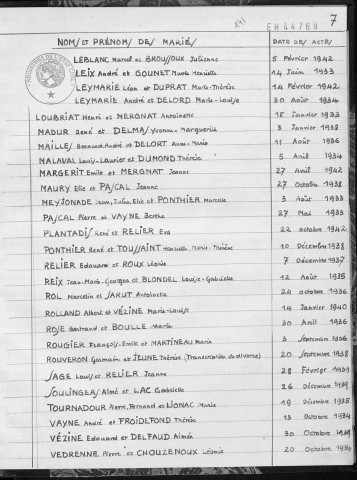 141
EH44769 7
NOMS ET PRÉNOM DES MARIÉS DATE DES ACTES
LEBLANC Marcel et BROUSSOUX Julienne 5 Février 1942
LEIX André et GOUNET Marie Henriette 14 Juin 1933
LEYMARIE Léon et DUPRAT Marie-Thérèse 14 Février 1942
LEYMARIE André et DELORD Marie-Louise 30 Août 1934
LOUBRIAT Henri et MERGNAT Antoinette 15 Janvier 1933
MADUR René et DELMAS Yvonne-Marguerite 3 Janvier 1938
MAILLES Bernard-André et DELORT Anne-Marie 11 Août 1936
MALAVAL Louis-Laurier et DUMOND Thérèse 5 Avril 1934
MARGERIT Emile et MERGNAT Jeanne 27 Avril 1942
MAURY Elie et PASCAL Jeanne 27 Octobre 1938
MEYJONADE Jean, Julien, Elie et PONTHIER Marcelle 3 Août 1933
PASCAL Pierre et VAYNE Berthe 27 Mai 1933
PLANTADIS René et RELIER Eva 22 Octobre 1942
PONTHIER René et TOUSSAINT Henriette Marie-Thérèse 10 Décembre 1938
RELIER Edouard et ROUX Léonie 7 Décembre 1937
REIX Jean-Marie-Georges et BLONDEL Louise-Gabrielle 12 Août 1935
ROL Marcellin et SARUT Antoinette 24 Octobre 1936
ROLLAND Albert et VÉZINE Marie-Louise 14 Janvier 1940
ROSE Bertrand et BOULLE Marie 30 Avril 1936
ROUGIER François-Emile et MARTINEAU Marie 3 Septembre 1936
ROUVERON Germain et JEUNE Thérèse (Transcription de divorce) 20 Septembre 1938
SAGE Louis et RELIER Jeanne 28 Février 1933
SOULINGEAS Aimé et LAC Gabrielle 26 Décembre
TOURNADOUR Pierre, Fernand et LIONAC Marie 19 Décembre 1935
VAYNE André et FROIDEFOND Thérèse 13 Octobre 1934
VÉZINE Edouard et DELFAUD Aimée 30 Octobre
VEDRENNE Pierre et CHOUZENOUX Léonie 20 Octobre